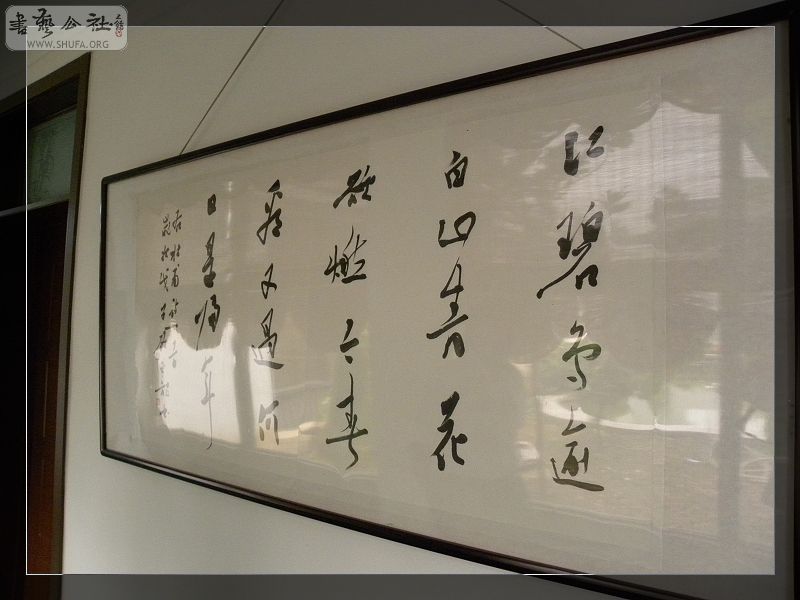 書藝公社
WWW.SHUFA.ORG
江碧鳥逾
白山青花
欲燃今春
看又過何
日是歸年
杜甫詩